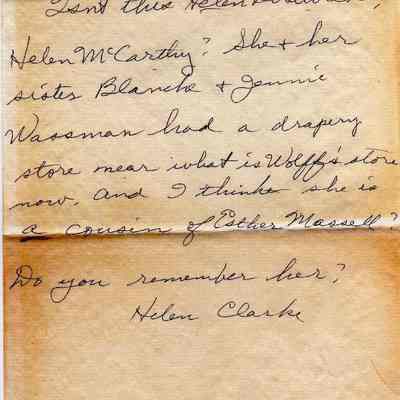 Isn't this Helen
Helen McCarthy? She + her
sister Blanche + Jennie
Wassman had a drapery
store near what is Wolff's store
now. And I think she is
a cousin of Esther Massell?
Do you remember her?
Helen Clarke